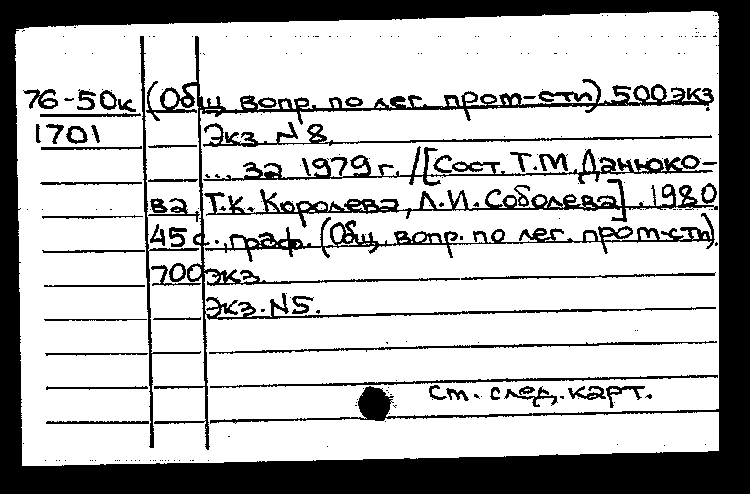 76-50к (Общ. вопр. по лег. пром-сти). 500 экз
1701 Экз. N8.
... за 1979 г. / [Сост. Т.М. Данюко-
ва, Т.К. Королева, Л.И. Соболева]. 1980
45 с., граф. (Общ. вопр. по лег. пром-сти)
700 экз.
Экз. N5.
ст. след. карт.